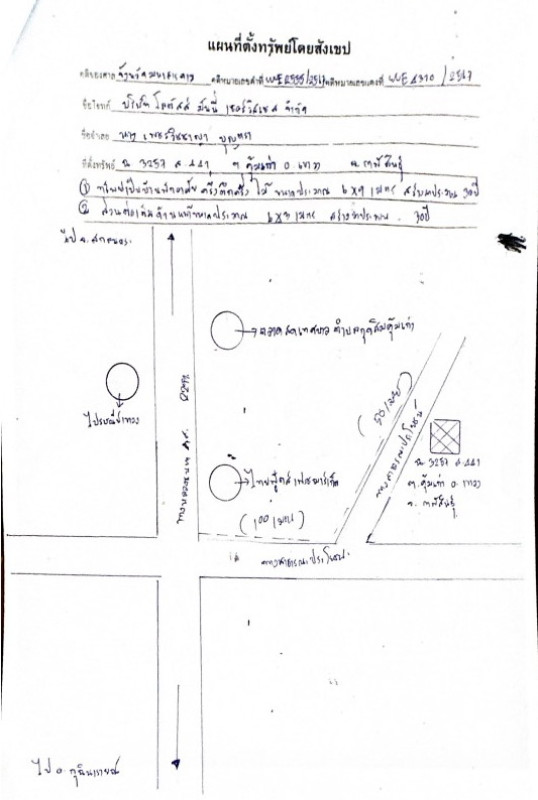 แผนที่ตั้งทรัพย์โดยสังเขป
คดีของศาล จังหวัดมหาสารคาม คดีหมายเลขดำที่ /2567 คดีหมายเลขแดงที่ ผบE 4310 / 2567
ชื่อโจทก์ บริษัท โลตัสส์ มันนี่ เซอร์วิสเซส จำกัด
ชื่อจำเลย นาง
ที่ตั้งทรัพย์ ฉ. 3257 ล. 441 ต. คุ้มเก่า อ. เขาวง จ. กาฬสินธุ์
① ทรัพย์เป็นบ้านพักอาศัย ครึ่งตึกครึ่งไม้ ขนาดประมาณ 6 x 9 เมตร สร้างมาประมาณ 30 ปี
② ส่วนต่อเติมด้านหน้าขนาดประมาณ 6 x 3 เมตร สร้างมาประมาณ 30 ปี
ไป จ. สกลนคร
ตลาดสดเทศบาลตำบลกุดสิมคุ้มเก่า
ไปรษณีย์เขาวง
ทางหลวงหมายเลข
ไทยฟู้ดส์ เฟรชมาร์เก็ต
(100 เมตร)
(50 เมตร)
ทางสาธารณะประโยชน์
ฉ. 3257 ล. 441
ต. คุ้มเก่า อ. เขาวง
จ. กาฬสินธุ์
ทางสาธารณะประโยชน์
ไป อ. กุฉินารายณ์